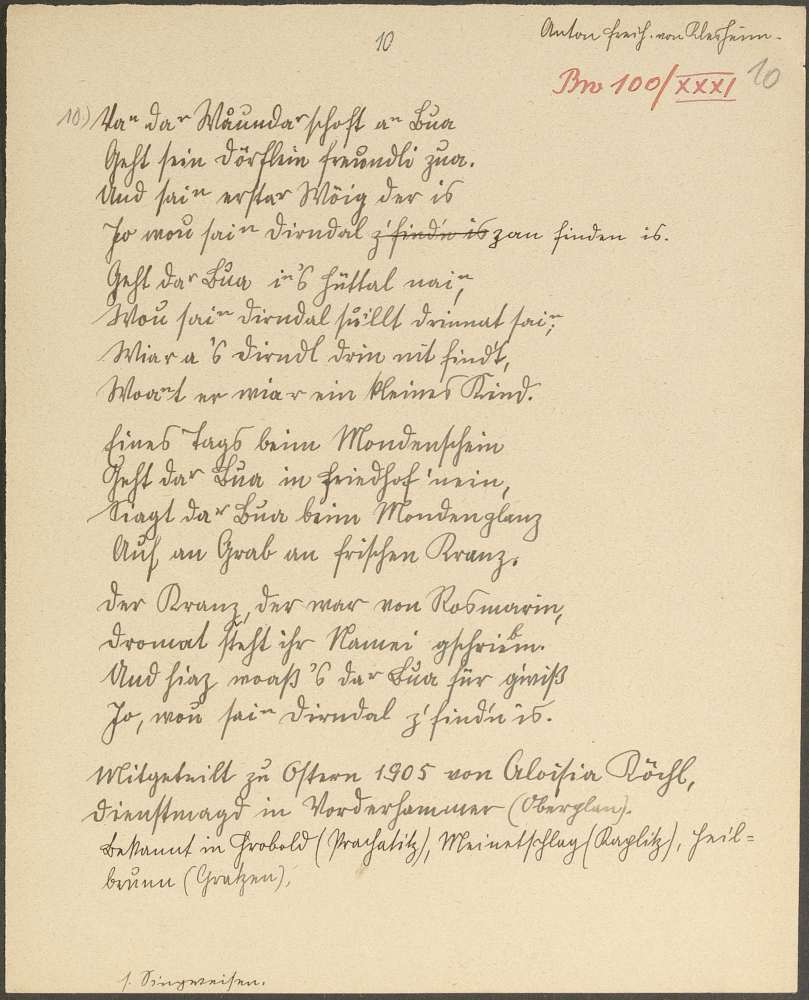 10
Anton Freih. von Klesheim.
Br 100/XXXI 10
10.) Vaⁿ daʳ Wåundaʳschoft aⁿ Bua
Geht sein Dörflein freundli zua.
Und saiⁿ erstar Wöig der is
Jo wou saiⁿ Dirndal z'find'n is zan finden is.
Geht daʳ Bua iⁿ's Hüttal naiⁿ,
Wou saiⁿ Dirndal süllt drinnat saiⁿ;
Wiar a 's Dirndl drin nit find't,
Woaⁿt er wia r ein kleines Kind.
Eines Tags beim Mondenschein
Geht daʳ Bua in Friedhof 'nein,
Siagt daʳ Bua beim Mondenglanz
Auf an Grab an frischen Kranz.
Der Kranz, der war von Rosmarin,
Dromat steht ihr Namei gschriebm.
Und hiaz woaß 's daʳ Bua für g'wiß
Jo, wou saiⁿ Dirndal z' find'n is.
Mitgeteilt zu Ostern 1905 von Aloisia Köchl,
Dienstmagd in Vorderhammer (Oberplan).
Bekannt in Grobold (Prachatitz), Meinetschlag (Kaplitz), Heil=
brunn (Gratzen).
s. Singweisen.